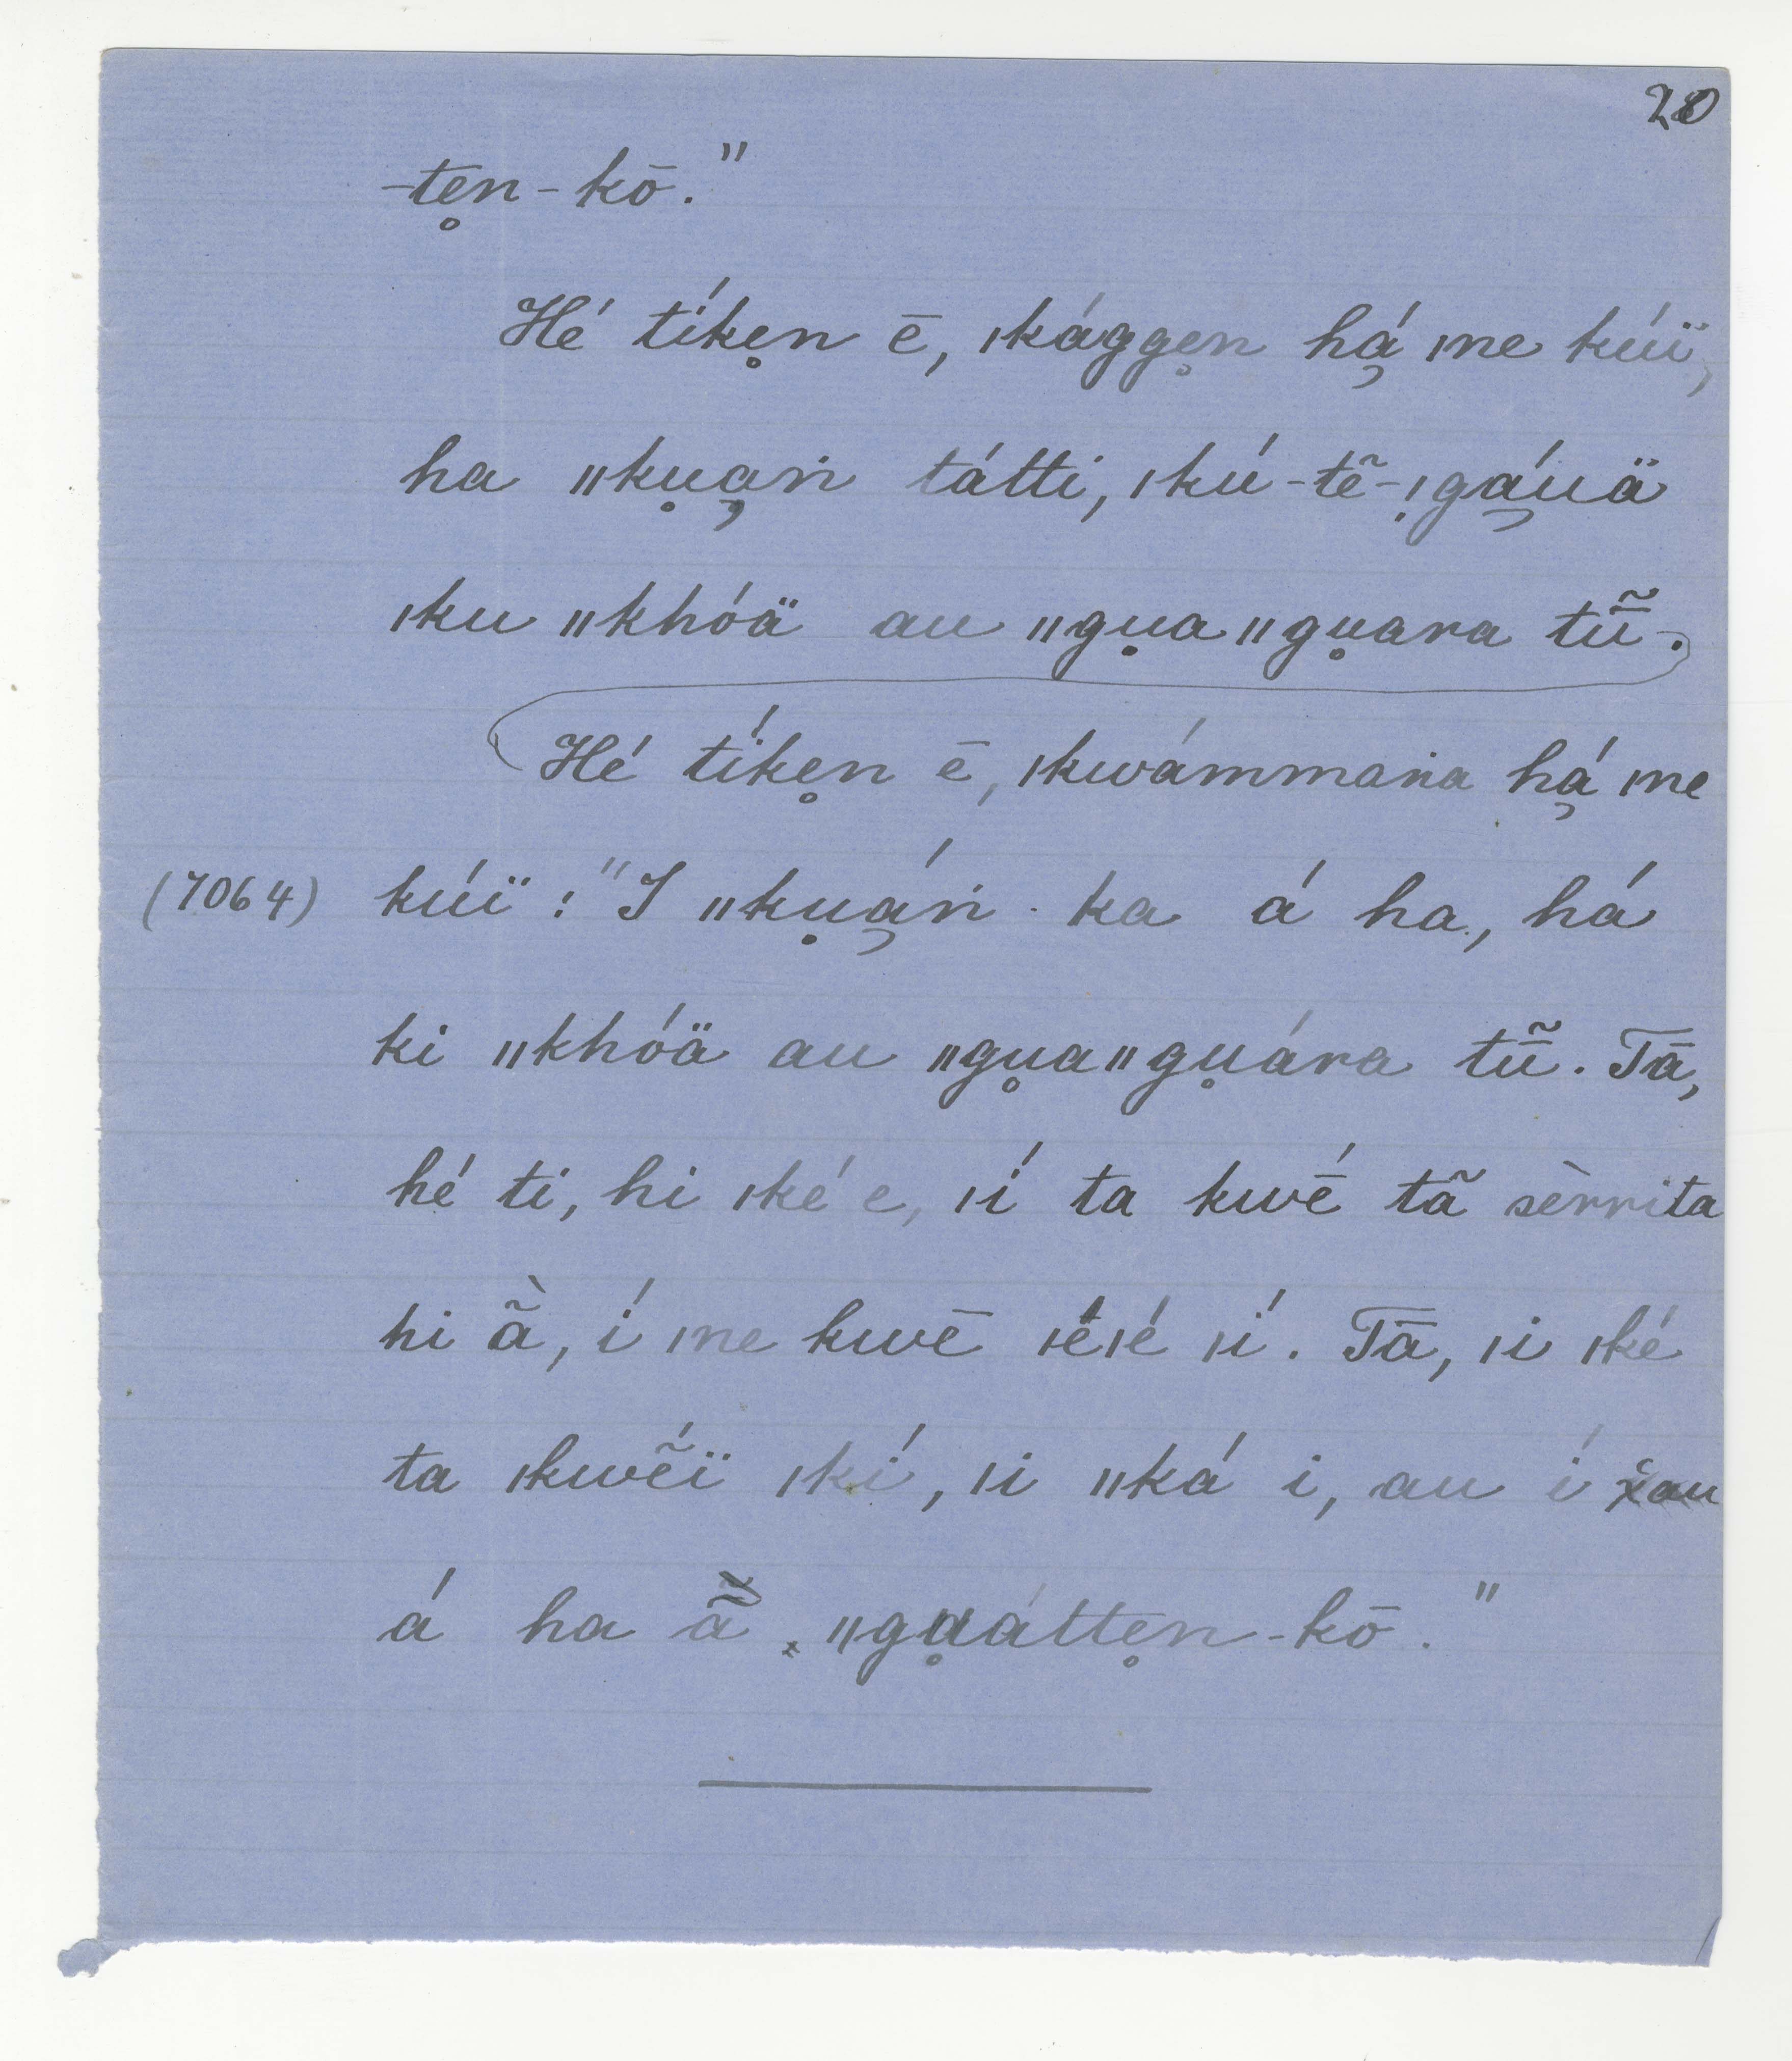 20
-te̥n-kō."
Hé tíke̥n ē, ǀkágge̥n há̜ ǀne kúï,
ha ǁku̥a̜ṅ tátti, ǀkú-tẽ-ǃgá̜uä
ǀku ǁkhóä au ǁgu̥aǁgu̥ara tū̃.
Hé tíke̥n ē, ǀkwámmaṅa há̜ ǀne
(7064) kúï: "I ǁku̥á̜ṅ ka á ha, há
ki ǁkhóä au ǁgu̥aǁgu̥ára tū̃. Tā,
hé ti, hi ǀké e, ǀí ta kwḗ tã sèrrita
hi ã̀, í ǀne kwē ǀéǀé ǀí. Tā, ǀi ǀké
ta ǀkwẽ́ï ǀkí, ǀi ǁká i, au í x̆au
á ha ã ǁgu̥átte̥n-kō."